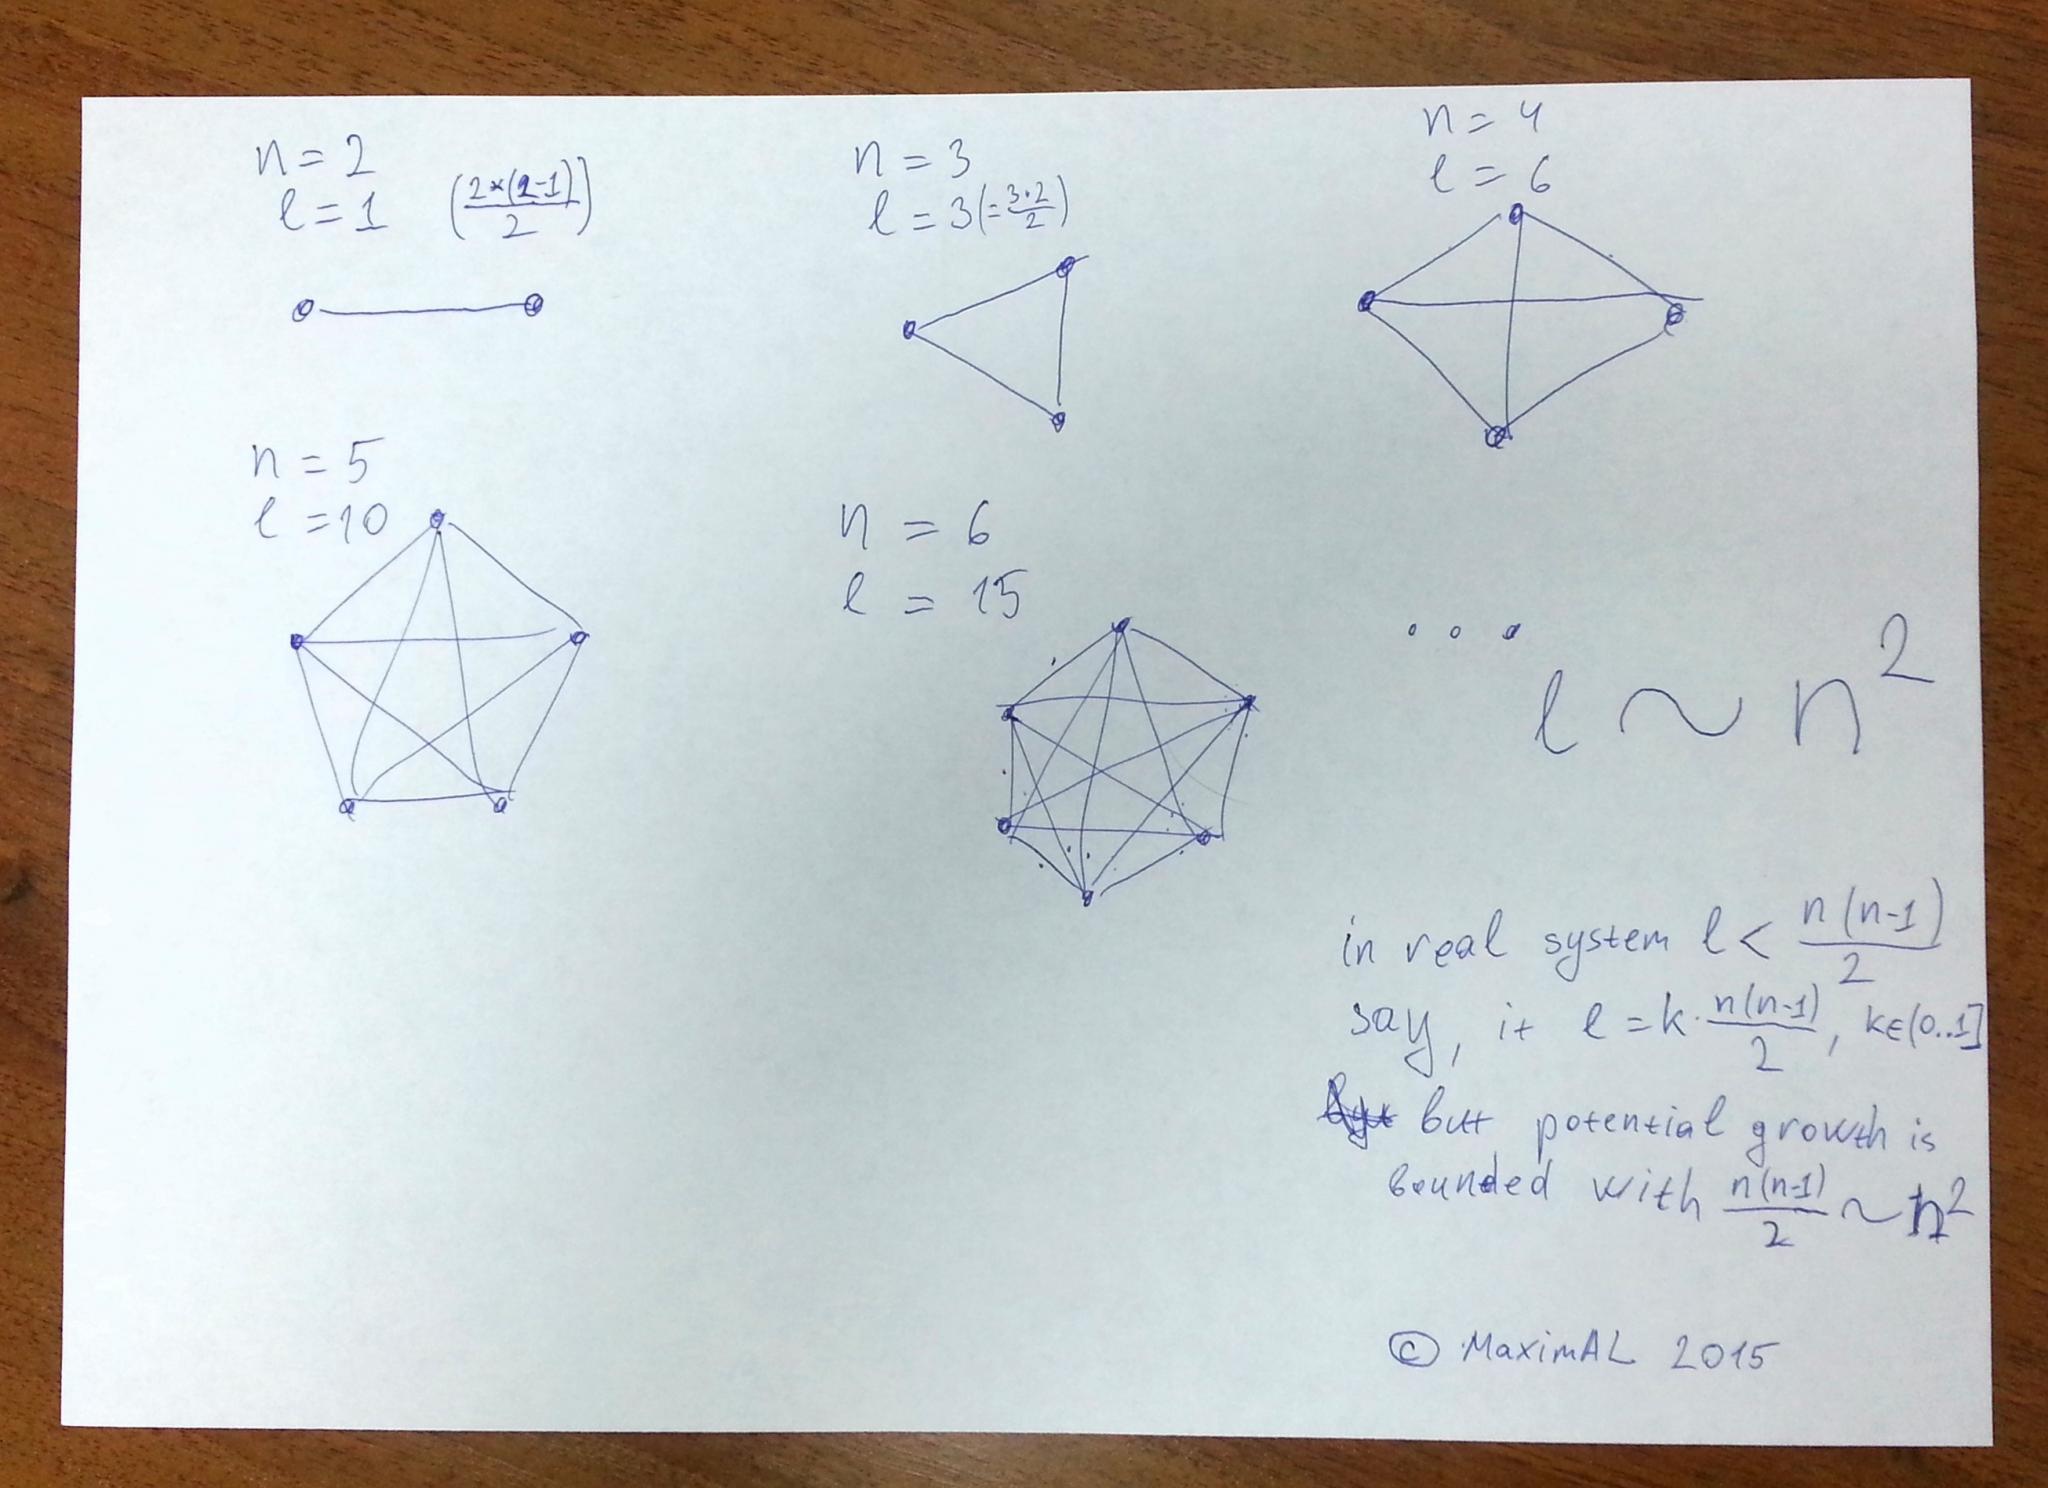 n = 2
l = 1 (2×(2-1)/2)
n = 3
l = 3 (= 3·2/2)
n = 4
l = 6
n = 5
l = 10
n = 6
l = 15
...
l ~ n²
in real system l < n(n-1)/2
say, it l = k · n(n-1)/2, k∈(0..1]
but potential growth is
bounded with n(n-1)/2 ~ n²
© MaximAL 2015